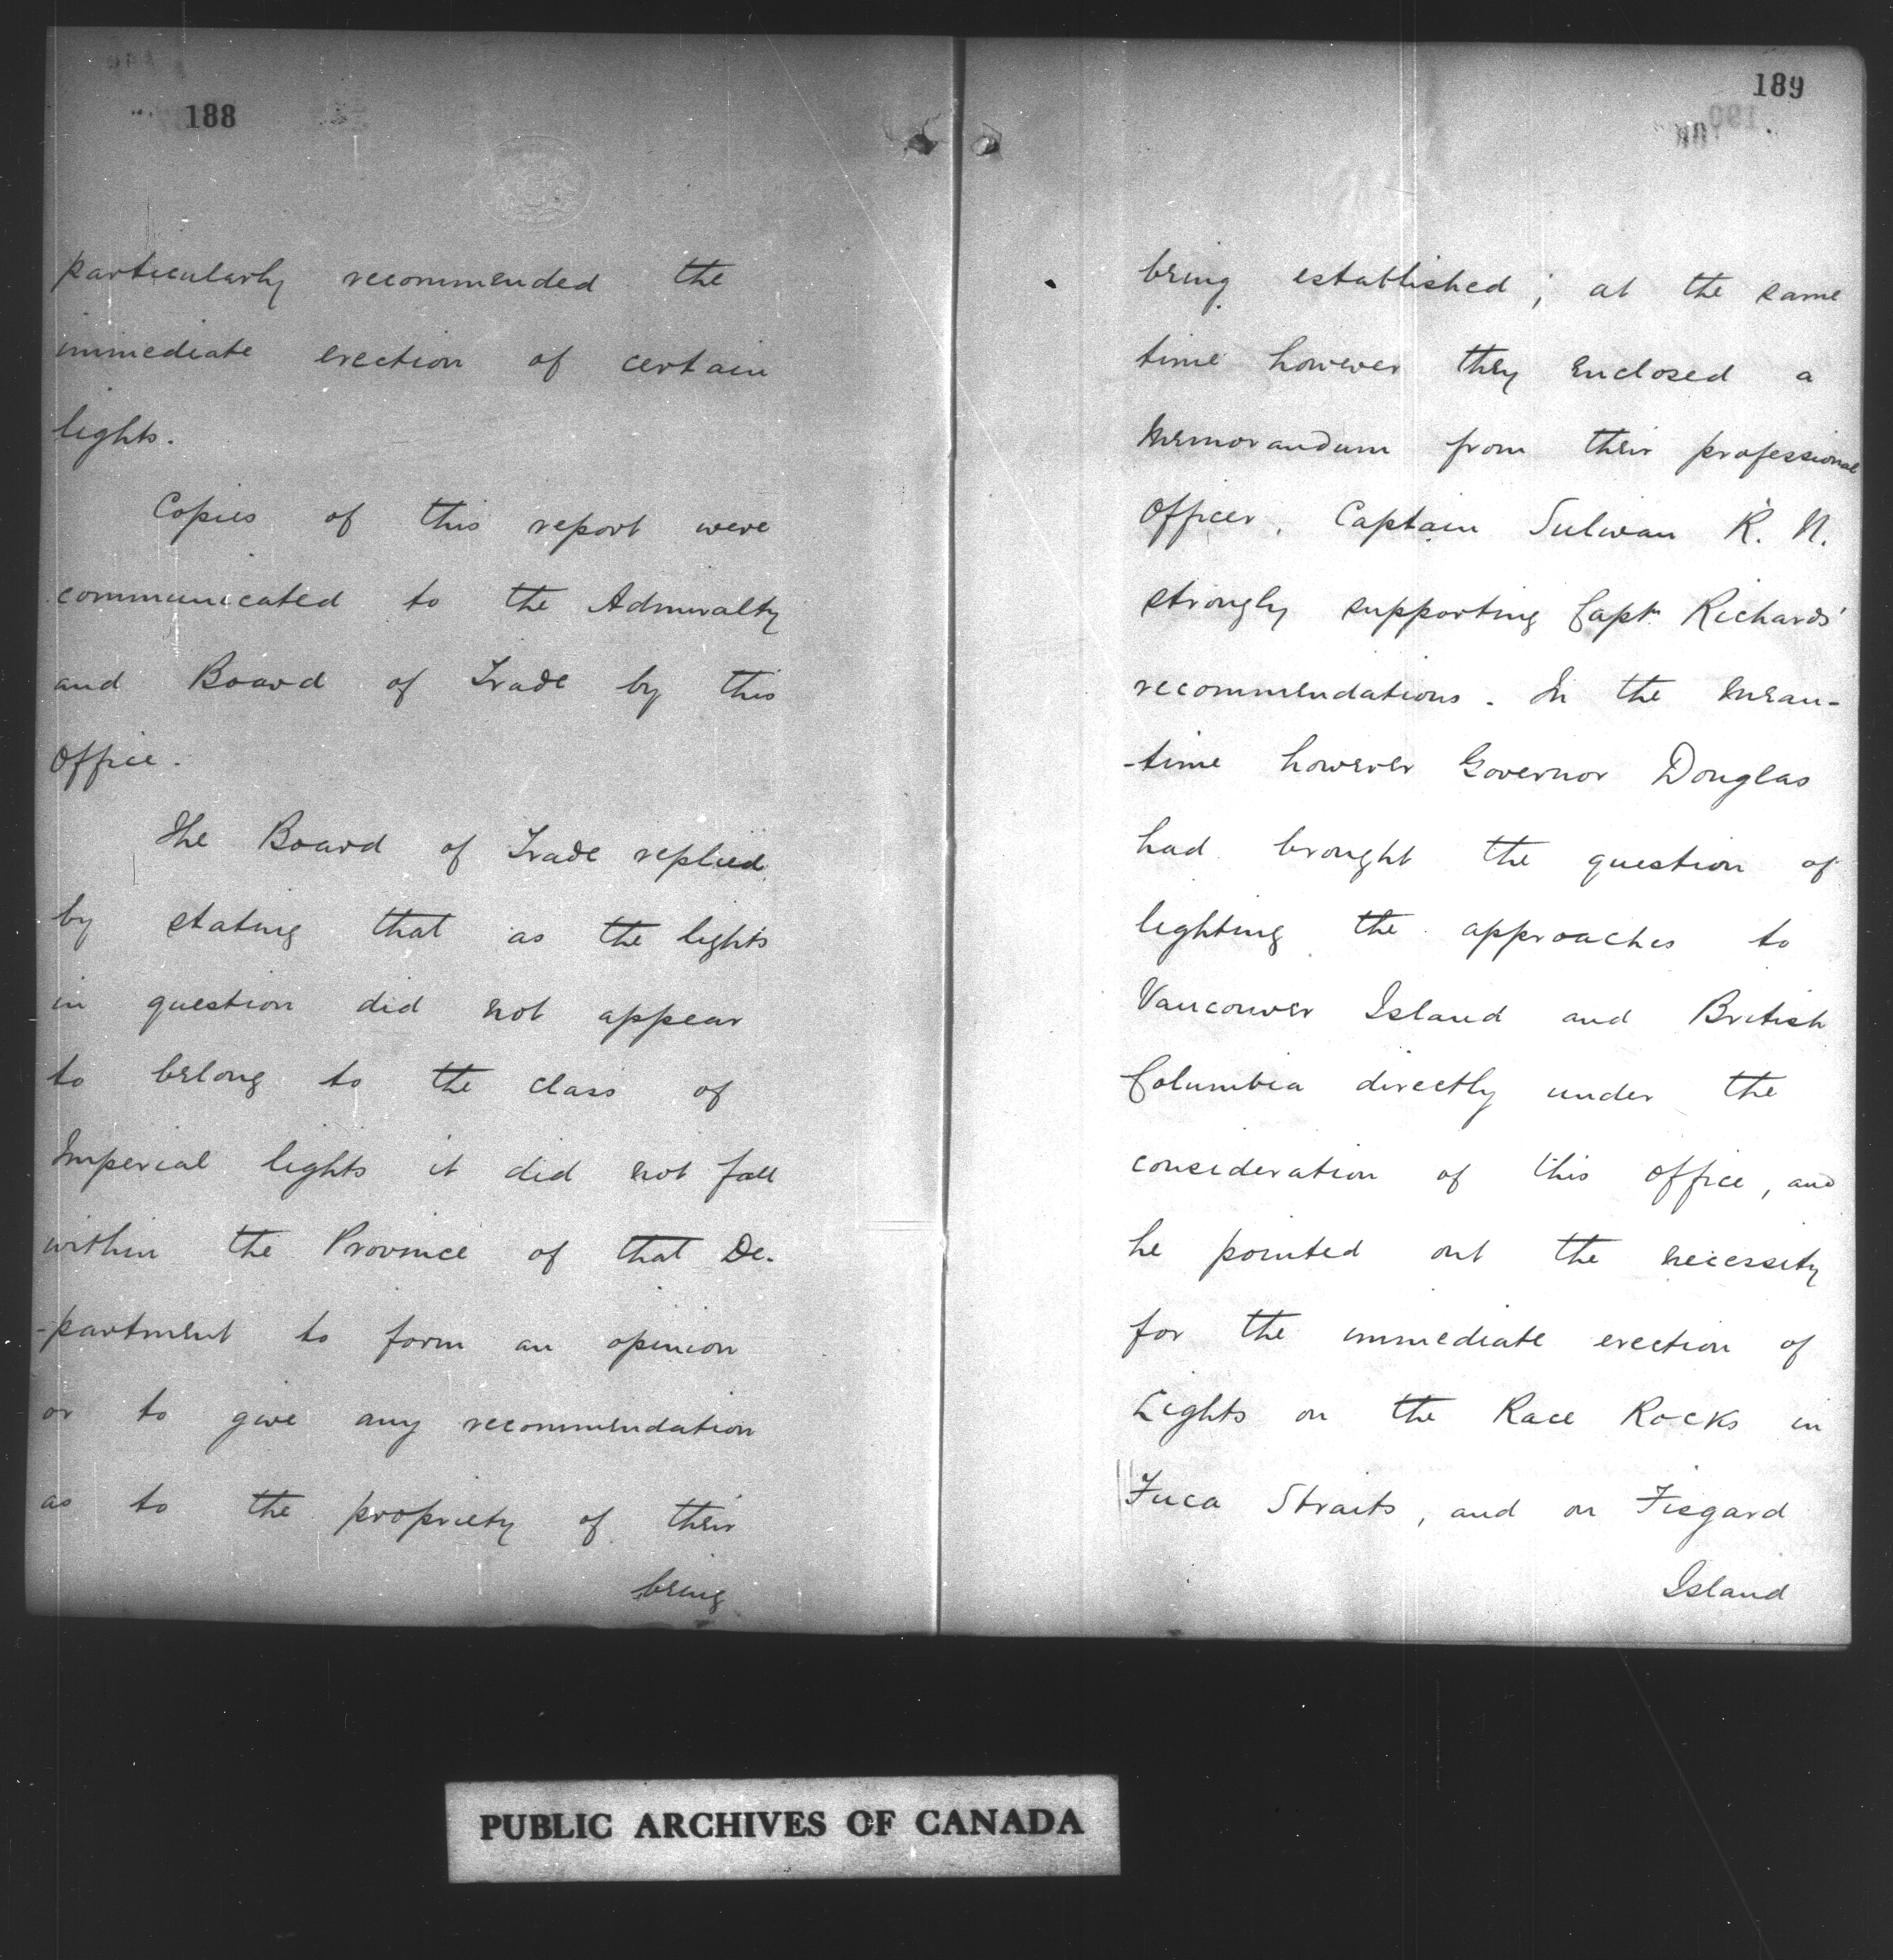 188
particularly recommended the
immediate erection of certain
lights.
Copies of this report were
communicated to the Admiralty
and Board of Trade by this
Office.
The Board of Trade replied
by stating that as the lights
in question did not appear
to belong to the class of
Imperial lights it did not fall
within the Province of that De-
-partment to form an opinion
or to give any recommendation
as to the propriety of their
being
189
being established; at the same
time however they enclosed a
Memorandum from their professional
Officer, Captain Sulivan R. N.
strongly supporting Captn Richards'
recommendations. In the mean-
-time however Governor Douglas
had brought the question of
lighting the approaches to
Vancouver Island and British
Columbia directly under the
consideration of this office, and
he pointed out the necessity
for the immediate erection of
Lights on the Race Rocks in
Fuca Straits, and on Fisgard
Island
PUBLIC ARCHIVES OF CANADA